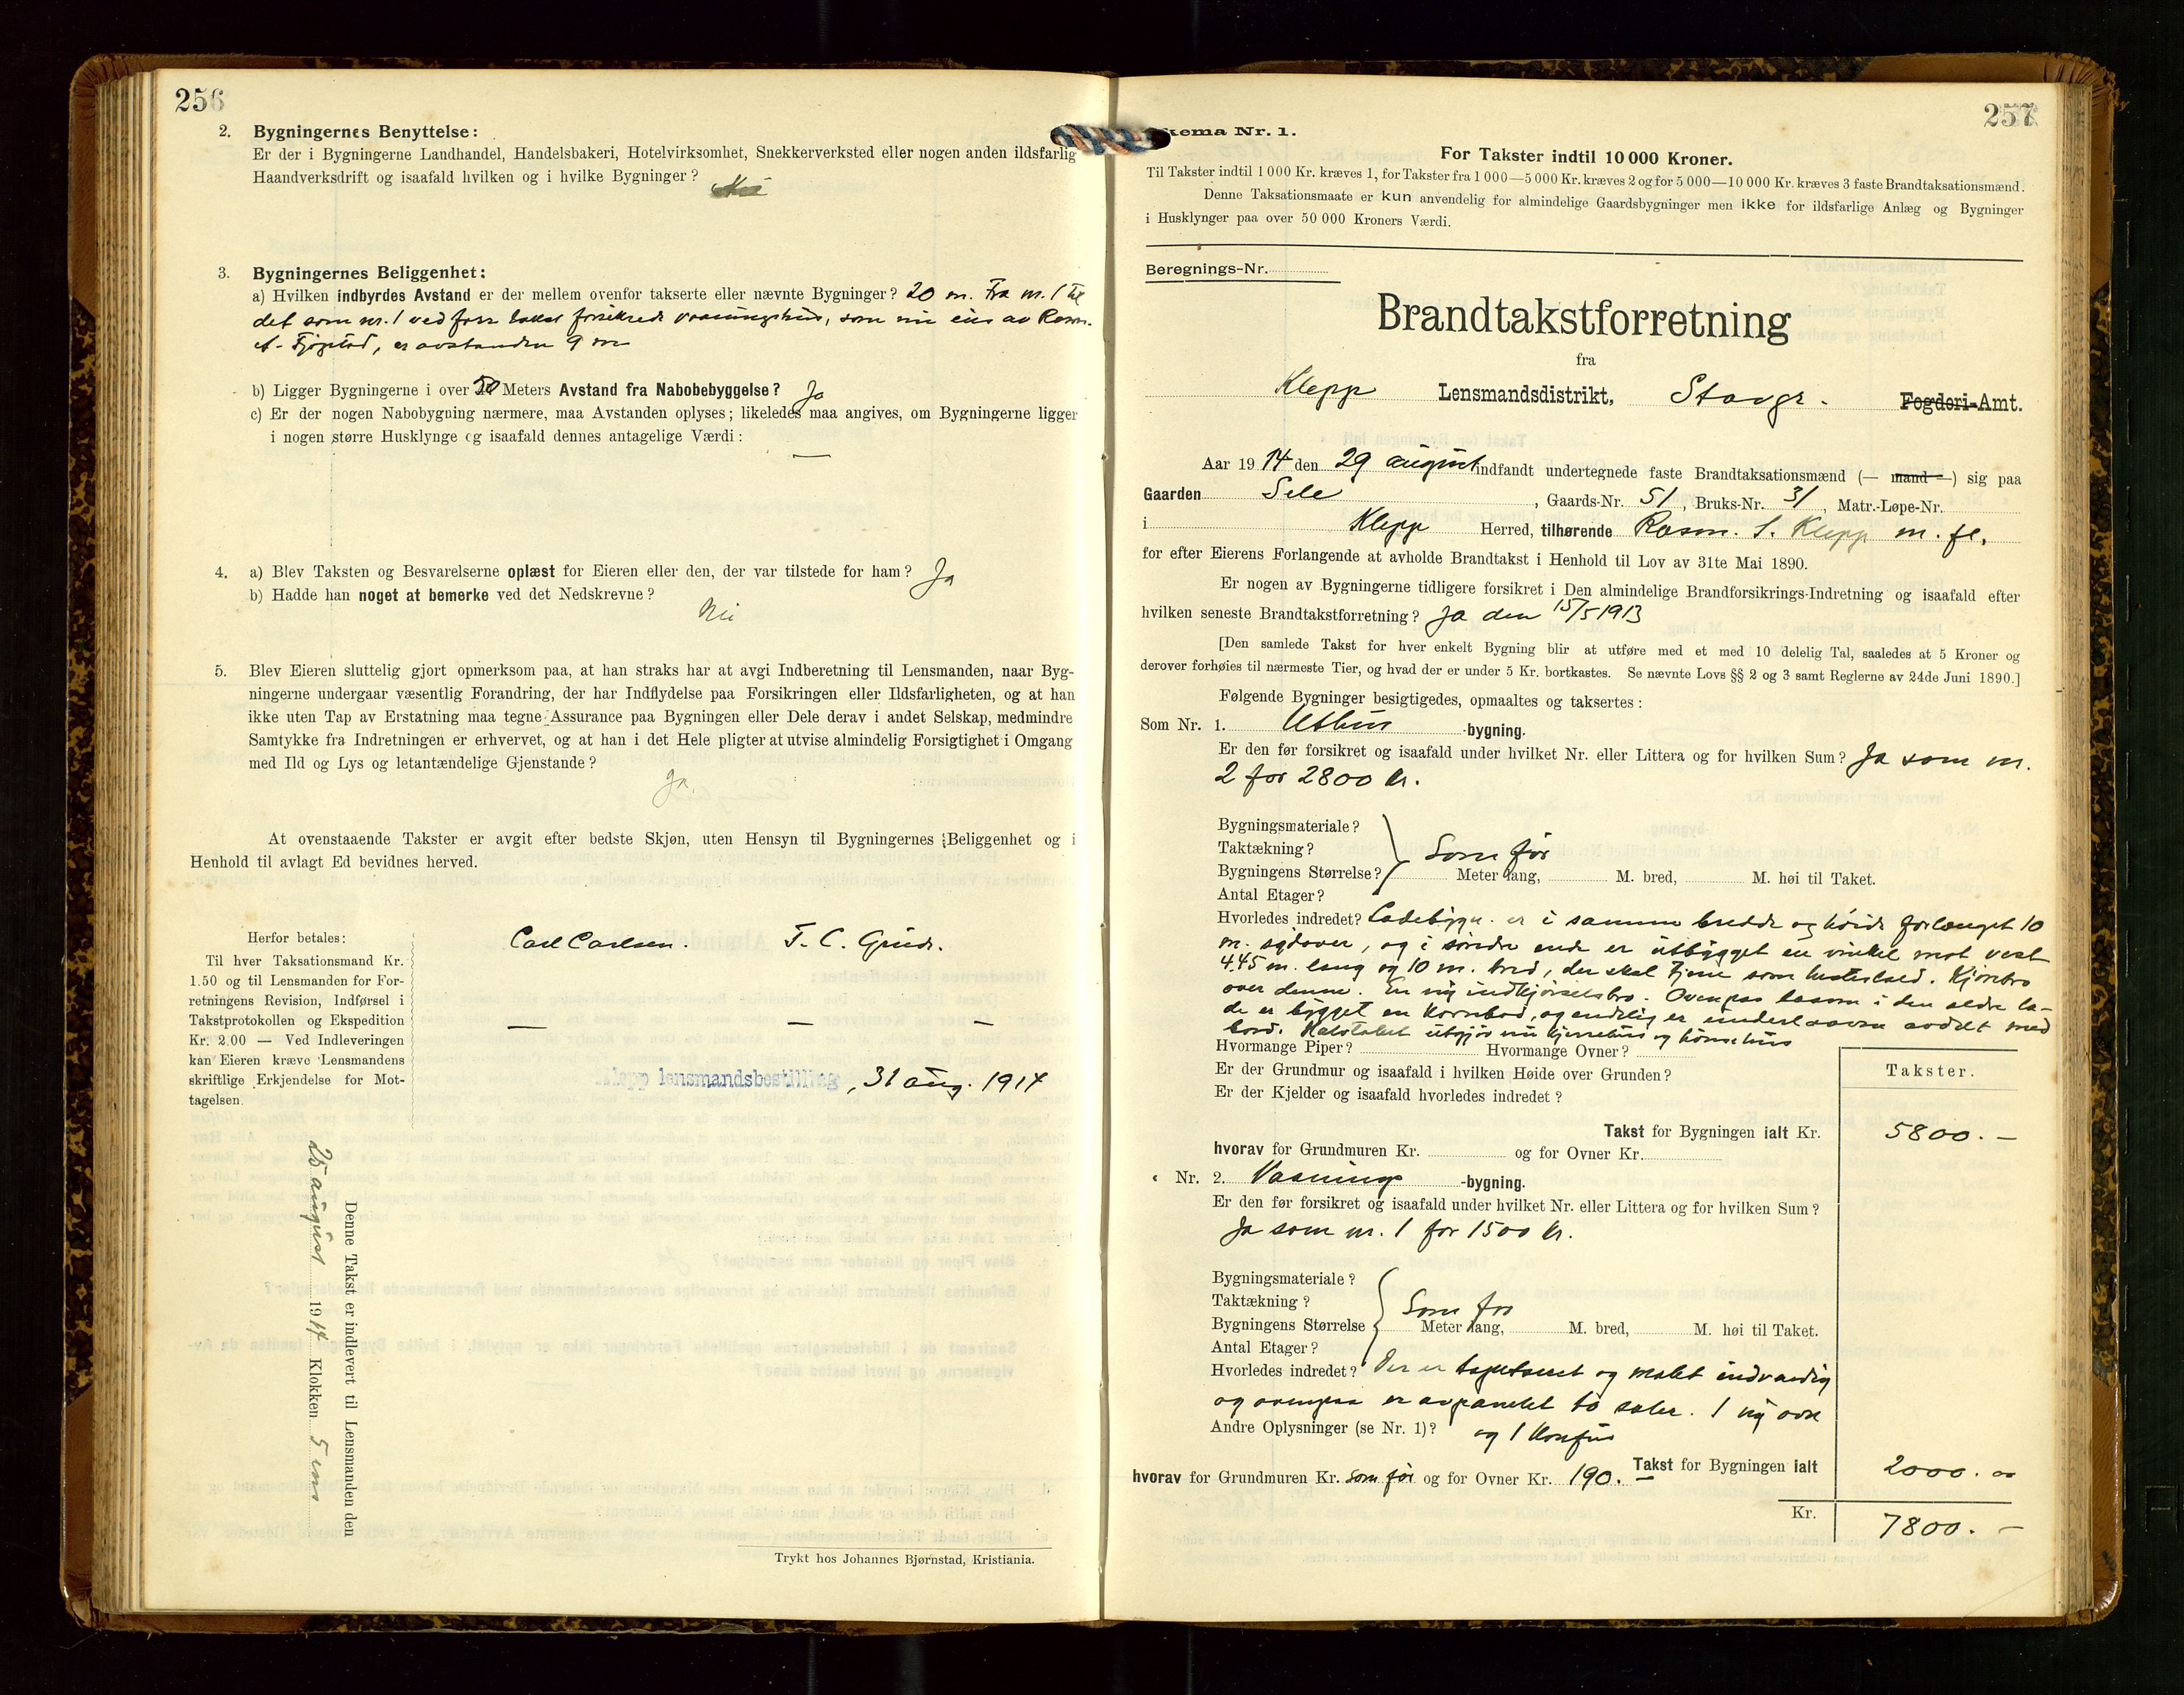 256
2. Bygningernes Benyttelse:
Er der i Bygningerne Landhandel, Handelsbakeri, Hotelvirksomhet, Snekkerverksted eller nogen anden ildsfarlig
Haandverksdrift og isaafald hvilken og i hvilke Bygninger? Nei
3. Bygningernes Beliggenhet:
a) Hvilken indbyrdes Avstand er der mellem ovenfor takserte eller nævnte Bygninger? 20 m. Fra nr. 1 til
det som nr. 1 ved forr takst forsikrede vaaningshus, som nu eies av Rasm.
A. Fjogstad, er avstanden 9 m
b) Ligger Bygningerne i over 50 Meters Avstand fra Nabobebyggelse? Ja
c) Er der nogen Nabobygning nærmere, maa Avstanden oplyses; likeledes maa angives, om Bygningerne ligger
i nogen større Husklynge og isaafald dennes antagelige Værdi: —
4. a) Blev Taksten og Besvarelserne oplæst for Eieren eller den, der var tilstede for ham? Ja
b) Hadde han noget at bemerke ved det Nedskrevne?
Nei
5. Blev Eieren sluttelig gjort opmerksom paa, at han straks har at avgi Indberetning til Lensmanden, naar Byg-
ningerne undergaar væsentlig Forandring, der har Indflydelse paa Forsikringen eller Ildsfarligheten, og at han
ikke uten Tap av Erstatning maa tegne Assurance paa Bygningen eller Dele derav i andet Selskap, medmindre
Samtykke fra Indretningen er erhvervet, og at han i det Hele pligter at utvise almindelig Forsigtighet i Omgang
med Ild og Lys og letantændelige Gjenstande?
Ja.
At ovenstaaende Takster er avgit efter bedste Skjøn, uten Hensyn til Bygningernes Beliggenhet og i
Henhold til avlagt Ed bevidnes herved.
Carl Carlsen. T. C. Grude.
Herfor betales:
Til hver Taksationsmand Kr.
1.50 og til Lensmanden for For-
retningens Revision, Indførsel i
Takstprotokollen og Ekspedition
Kr. 2.00 — Ved Indleveringen
kan Eieren kræve Lensmandens
skriftlige Erkjendelse for Mot-
tagelsen.
— — —
Klepp lensmandsbestilling, 31 aug. 1914
Denne Takst er indlevert til Lensmanden den
25 august 1914 Klokken 5 em
Trykt hos Johannes Bjørnstad, Kristiania.
257
Skema Nr. 1.
For Takster indtil 10 000 Kroner.
Til Takster indtil 1 000 Kr. kræves 1, for Takster fra 1 000—5 000 Kr. kræves 2 og for 5 000—10 000 Kr. kræves 3 faste Brandtaksationsmænd.
Denne Taksationsmaate er kun anvendelig for almindelige Gaardsbygninger men ikke for ildsfarlige Anlæg og Bygninger
i Husklynger paa over 50 000 Kroners Værdi.
Beregnings-Nr.
Brandtakstforretning
fra
Klepp Lensmandsdistrikt, Stavgr. Fogderi-Amt.
Aar 1914 den 29 august indfandt undertegnede faste Brandtaksationsmænd (— mand —) sig paa
Gaarden Sele, Gaards-Nr. 51, Bruks-Nr. 31, Matr.-Løpe-Nr.
i Klepp Herred, tilhørende Rasm. S. Klepp m. fl.
for efter Eierens Forlangende at avholde Brandtakst i Henhold til Lov av 31te Mai 1890.
Er nogen av Bygningerne tidligere forsikret i Den almindelige Brandforsikrings-Indretning og isaafald efter
hvilken seneste Brandtakstforretning? Ja den 15/5 1913
[Den samlede Takst for hver enkelt Bygning blir at utføre med et med 10 delelig Tal, saaledes at 5 Kroner og
derover forhøies til nærmeste Tier, og hvad der er under 5 Kr. bortkastes. Se nævnte Lovs §§ 2 og 3 samt Reglerne av 24de Juni 1890.]
Følgende Bygninger besigtigedes, opmaaltes og taksertes:
Som Nr. 1. Uthus -bygning.
Er den før forsikret og isaafald under hvilket Nr. eller Littera og for hvilken Sum? Ja som nr.
2 for 2800 kr.
Bygningsmateriale?
Taktækning? Som før
Bygningens Størrelse? Meter lang, M. bred, M. høi til Taket.
Antal Etager?
Hvorledes indredet? Ladebygn. er i samme bredde og høide forlænget 10
m. sydover, og i søndre ende er utbygget en vinkel mot vest
4.45 m. lang og 10 m. bred, der skal tjene som hestestald. Kjørebro
over denne. En ny indkjørselsbro. Ovenpaa laaven i den ældre la-
de er bygget en kornbod, og endelig er underlaaven avdelt med
bord. Halvtaket utgjør nu kjerrehus og hønsehus
Hvormange Piper? Hvormange Ovner?
Er der Grundmur og isaafald i hvilken Høide over Grunden?
Er der Kjelder og isaafald hvorledes indredet?
Takster.
Takst for Bygningen ialt Kr. 5800.—
hvorav for Grundmuren Kr. og for Ovner Kr.
Nr. 2. Vaanings -bygning.
Er den før forsikret og isaafald under hvilket Nr. eller Littera og for hvilken Sum?
Ja som nr. 1 for 1500 kr.
Bygningsmateriale?
Taktækning? Som før
Bygningens Størrelse Meter lang, M. bred, M. høi til Taket.
Antal Etager?
Hvorledes indredet? Der er tapetseret og malet indvendig
og ovenpaa er avpanelet to saler. 1 ny ovn
Andre Oplysninger (se Nr. 1)? og 1 komfur
Takst for Bygningen ialt 2000.00
hvorav for Grundmuren Kr. som før og for Ovner Kr. 190.—
Kr. 7800.—